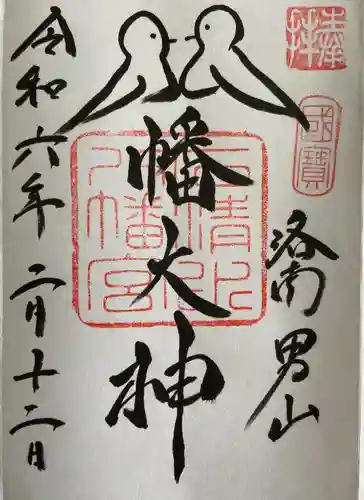 奉拝
國寶
洛南 男山
八幡大神
石清水
八幡宮
令和六年 二月十二日